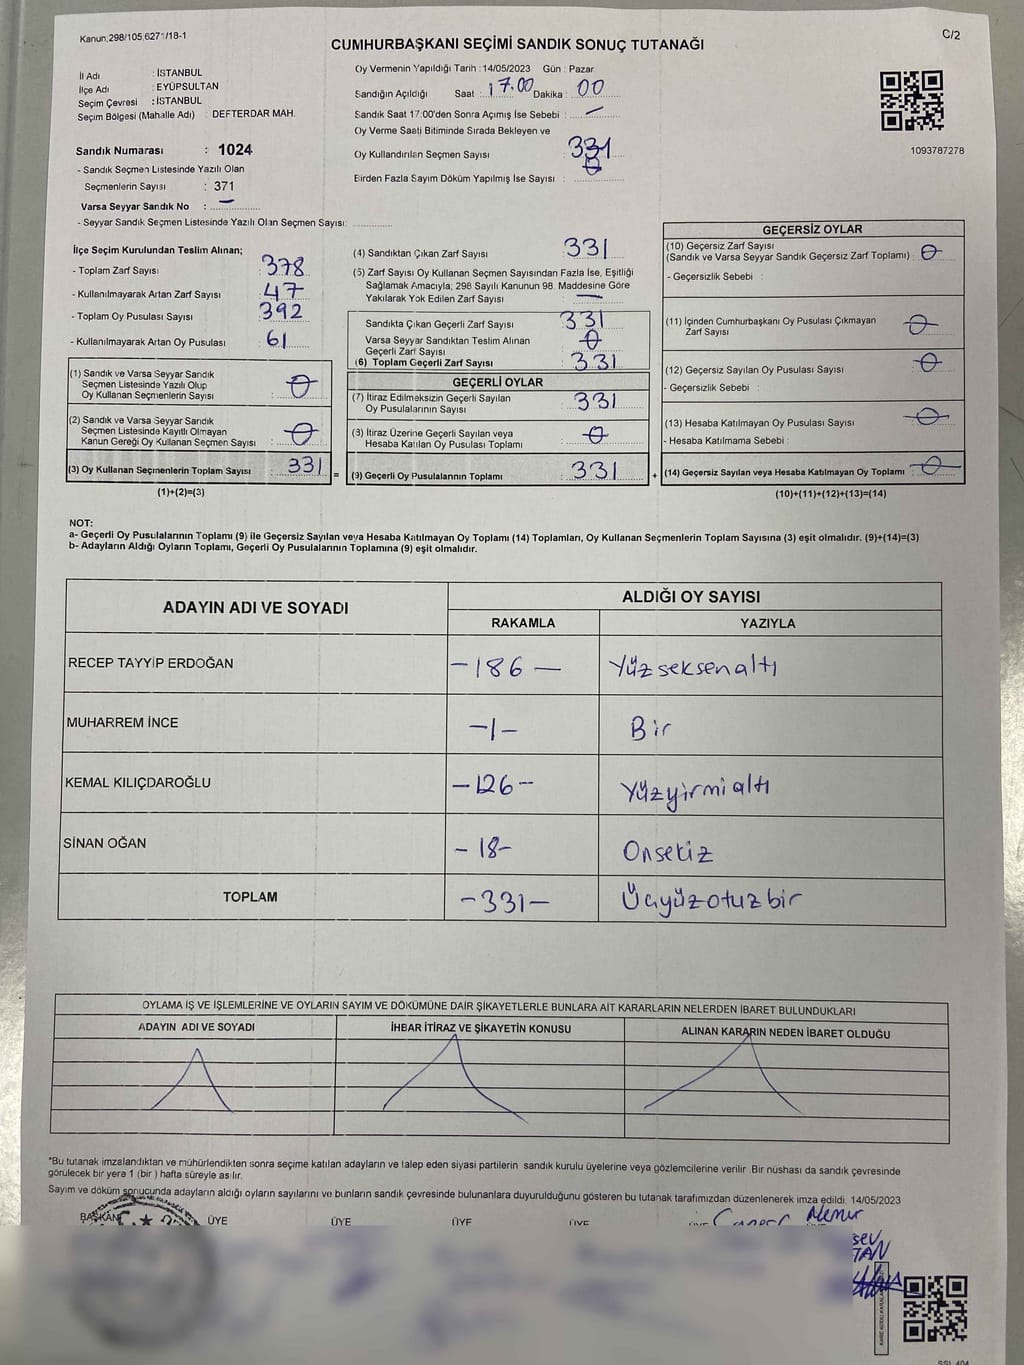 Kanun 298/105 6271/18-1
C/2
CUMHURBAŞKANI SEÇİMİ SANDIK SONUÇ TUTANAĞI
İl Adı : İSTANBUL
İlçe Adı : EYÜPSULTAN
Seçim Çevresi : İSTANBUL
Seçim Bölgesi (Mahalle Adı) : DEFTERDAR MAH.
Oy Vermenin Yapıldığı Tarih : 14/05/2023 Gün : Pazar
Sandığın Açıldığı Saat : 17.00 Dakika : 00
Sandık Saat 17:00'den Sonra Açımış İse Sebebi : —
Oy Verme Saati Bitiminde Sırada Bekleyen ve
Oy Kullandırılan Seçmen Sayısı : 331
Birden Fazla Sayım Döküm Yapılmış İse Sayısı : 0
1093787278
Sandık Numarası : 1024
- Sandık Seçmen Listesinde Yazılı Olan
Seçmenlerin Sayısı : 371
Varsa Seyyar Sandık No : —
- Seyyar Sandık Seçmen Listesinde Yazılı Olan Seçmen Sayısı:
İlçe Seçim Kurulundan Teslim Alınan;
- Toplam Zarf Sayısı : 378
- Kullanılmayarak Artan Zarf Sayısı : 47
- Toplam Oy Pusulası Sayısı : 392
- Kullanılmayarak Artan Oy Pusulası : 61
(1) Sandık ve Varsa Seyyar Sandık
Seçmen Listesinde Yazılı Olup
Oy Kullanan Seçmenlerin Sayısı : 0
(2) Sandık ve Varsa Seyyar Sandık
Seçmen Listesinde Kayıtlı Olmayan
Kanun Gereği Oy Kullanan Seçmen Sayısı : 0
(3) Oy Kullanan Seçmenlerin Toplam Sayısı : 331
(1)+(2)=(3)
(4) Sandıktan Çıkan Zarf Sayısı : 331
(5) Zarf Sayısı Oy Kullanan Seçmen Sayısından Fazla İse, Eşitliği
Sağlamak Amacıyla; 298 Sayılı Kanunun 98. Maddesine Göre
Yakılarak Yok Edilen Zarf Sayısı : —
Sandıkta Çıkan Geçerli Zarf Sayısı : 331
Varsa Seyyar Sandıktan Teslim Alınan
Geçerli Zarf Sayısı : 0
(6) Toplam Geçerli Zarf Sayısı : 331
GEÇERLİ OYLAR
(7) İtiraz Edilmeksizin Geçerli Sayılan
Oy Pusulalarının Sayısı : 331
(3) İtiraz Üzerine Geçerli Sayılan veya
Hesaba Katılan Oy Pusulası Toplamı : 0
= (9) Geçerli Oy Pusulalarının Toplamı : 331 +
GEÇERSİZ OYLAR
(10) Geçersiz Zarf Sayısı
(Sandık ve Varsa Seyyar Sandık Geçersiz Zarf Toplamı) : 0
- Geçersizlik Sebebi :
(11) İçinden Cumhurbaşkanı Oy Pusulası Çıkmayan
Zarf Sayısı : 0
(12) Geçersiz Sayılan Oy Pusulası Sayısı : 0
- Geçersizlik Sebebi :
(13) Hesaba Katılmayan Oy Pusulası Sayısı : 0
- Hesaba Katılmama Sebebi :
(14) Geçersiz Sayılan veya Hesaba Katılmayan Oy Toplamı : 0
(10)+(11)+(12)+(13)=(14)
NOT:
a- Geçerli Oy Pusulalarının Toplamı (9) ile Geçersiz Sayılan veya Hesaba Katılmayan Oy Toplamı (14) Toplamları, Oy Kullanan Seçmenlerin Toplam Sayısına (3) eşit olmalıdır. (9)+(14)=(3)
b- Adayların Aldığı Oyların Toplamı, Geçerli Oy Pusulalarının Toplamına (9) eşit olmalıdır.
ADAYIN ADI VE SOYADI
ALDIĞI OY SAYISI
RAKAMLA YAZIYLA
RECEP TAYYİP ERDOĞAN -186- Yüzseksenaltı
MUHARREM İNCE -1- Bir
KEMAL KILIÇDAROĞLU -126- Yüzyirmialtı
SİNAN OĞAN -18- Onsekiz
TOPLAM -331- Üçyüzotuzbir
OYLAMA İŞ VE İŞLEMLERİNE VE OYLARIN SAYIM VE DÖKÜMÜNE DAİR ŞİKAYETLERLE BUNLARA AİT KARARLARIN NELERDEN İBARET BULUNDUKLARI
ADAYIN ADI VE SOYADI İHBAR İTİRAZ VE ŞİKAYETİN KONUSU ALINAN KARARIN NEDEN İBARET OLDUĞU
*Bu tutanak imzalandıktan ve mühürlendikten sonra seçime katılan adayların ve talep eden siyasi partilerin sandık kurulu üyelerine veya gözlemcilerine verilir. Bir nüshası da sandık çevresinde
görülecek bir yere 1 (bir) hafta süreyle asılır.
Sayım ve döküm sonucunda adayların aldığı oyların sayılarını ve bunların sandık çevresinde bulunanlara duyurulduğunu gösteren bu tutanak tarafımızdan düzenlenerek imza edildi. 14/05/2023
BAŞKAN ÜYE ÜYE ÜYE ÜYE ÜYE